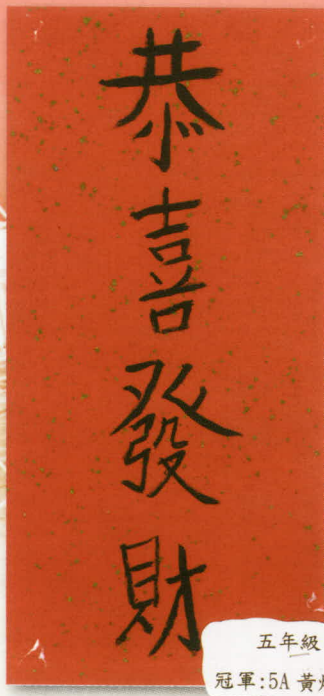 恭喜發財
五年級
冠軍:5A 黃